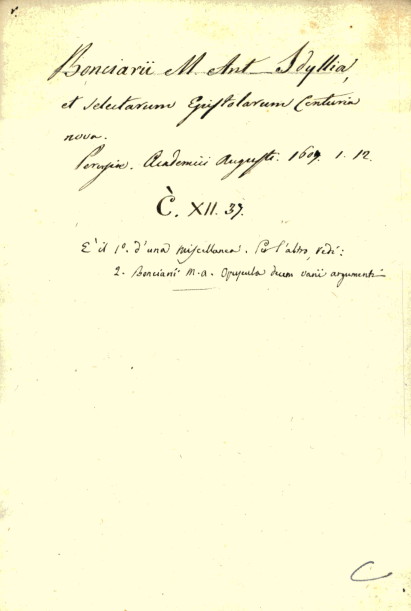 Bonciarii M. Ant. Idyllia,
et selectarum Epistolarum Centuria
nova.
Perusiæ. Academici Augusti. 1607. 1. 12.
C. XII. 37.
È il 1º. d'una Miscellanea. Per l'altro, vedi:
2. Bonciarii M. A. Opuscula decem varii argumenti
C